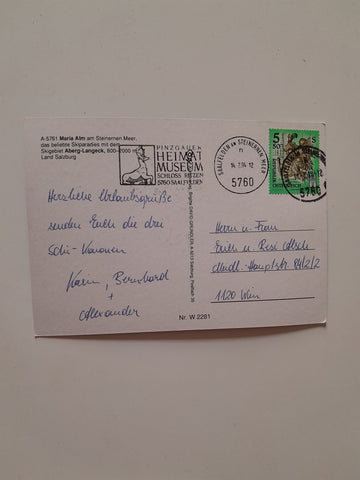 A-5761 Maria Alm am Steinernen Meer,
das beliebte Skiparadies mit dem
Skigebiet Aberg-Langeck, 800–2000 m
Land Salzburg
PINZGAUER
HEIMAT
MUSEUM
SCHLOSS RITZEN
5760 SAALFELDEN
SAALFELDEN AM STEINERNEN MEER
n
14. 2. 94 - 12
5760
5 S
ÖSTERREICH
5760
Herzliche Urlaubsgrüße
senden Euch die drei
Schi-Kanonen
Karin, Bernhard
+
Alexander
Herrn u. Frau
Erich u. Resi
Meidl. Hauptstr. 84/2/2
1120 Wien
Nr. W 2281